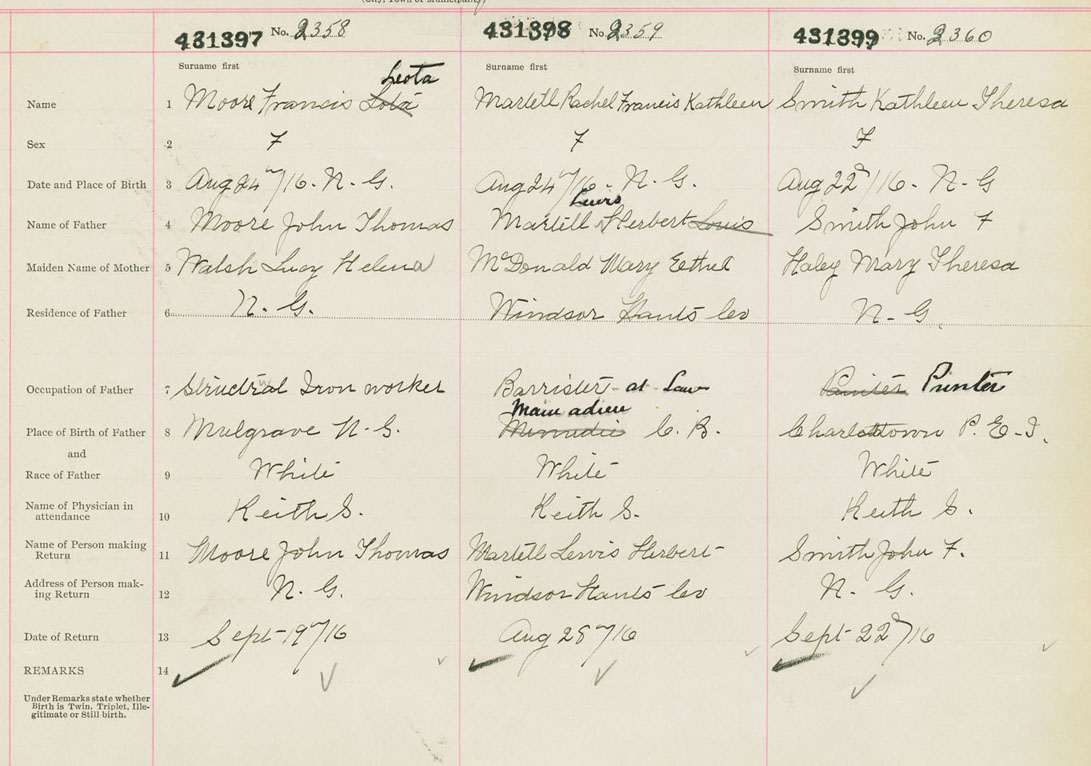 (City, Town or Municipality)
431397 No. 2358 431398 No. 2359 431399 No. 2360
Surname first Surname first Surname first
Leota
Name 1 Moore Francis Lota Martell Rachel Francis Kathleen Smith Kathleen Theresa
Sex 2 F F F
Date and Place of Birth 3 Aug 24th/16 - N. G. Aug 24th/16 - N. G. Aug 22d/16 - N G
Lewis
Name of Father 4 Moore John Thomas Martell Herbert Louis Smith John F
Maiden Name of Mother 5 Walsh Lucy Helena McDonald Mary Eethel Haley Mary Theresa
Residence of Father 6 N. G. Windsor Hants Co N - G.
Occupation of Father 7 Structral Iron worker Barrister - at Law Painter Printer
Main adieu
Place of Birth of Father 8 Mulgrave N. G. C. B. Charlottown P. E. I.
and
Race of Father 9 White White White
Name of Physician in
attendance 10 Keith S. Keith S. Keith S.
Name of Person making
Return 11 Moore John Thomas Martell Lewis Herbert Smith John F.
Address of Person mak-
ing Return 12 N. G. Windsor Hants Co N. G.
Date of Return 13 Sept 19th/16 Aug 28th/16 Sept 22d/16
REMARKS 14
Under Remarks state whether
Birth is Twin, Triplet, Ille-
gitimate or Still birth.